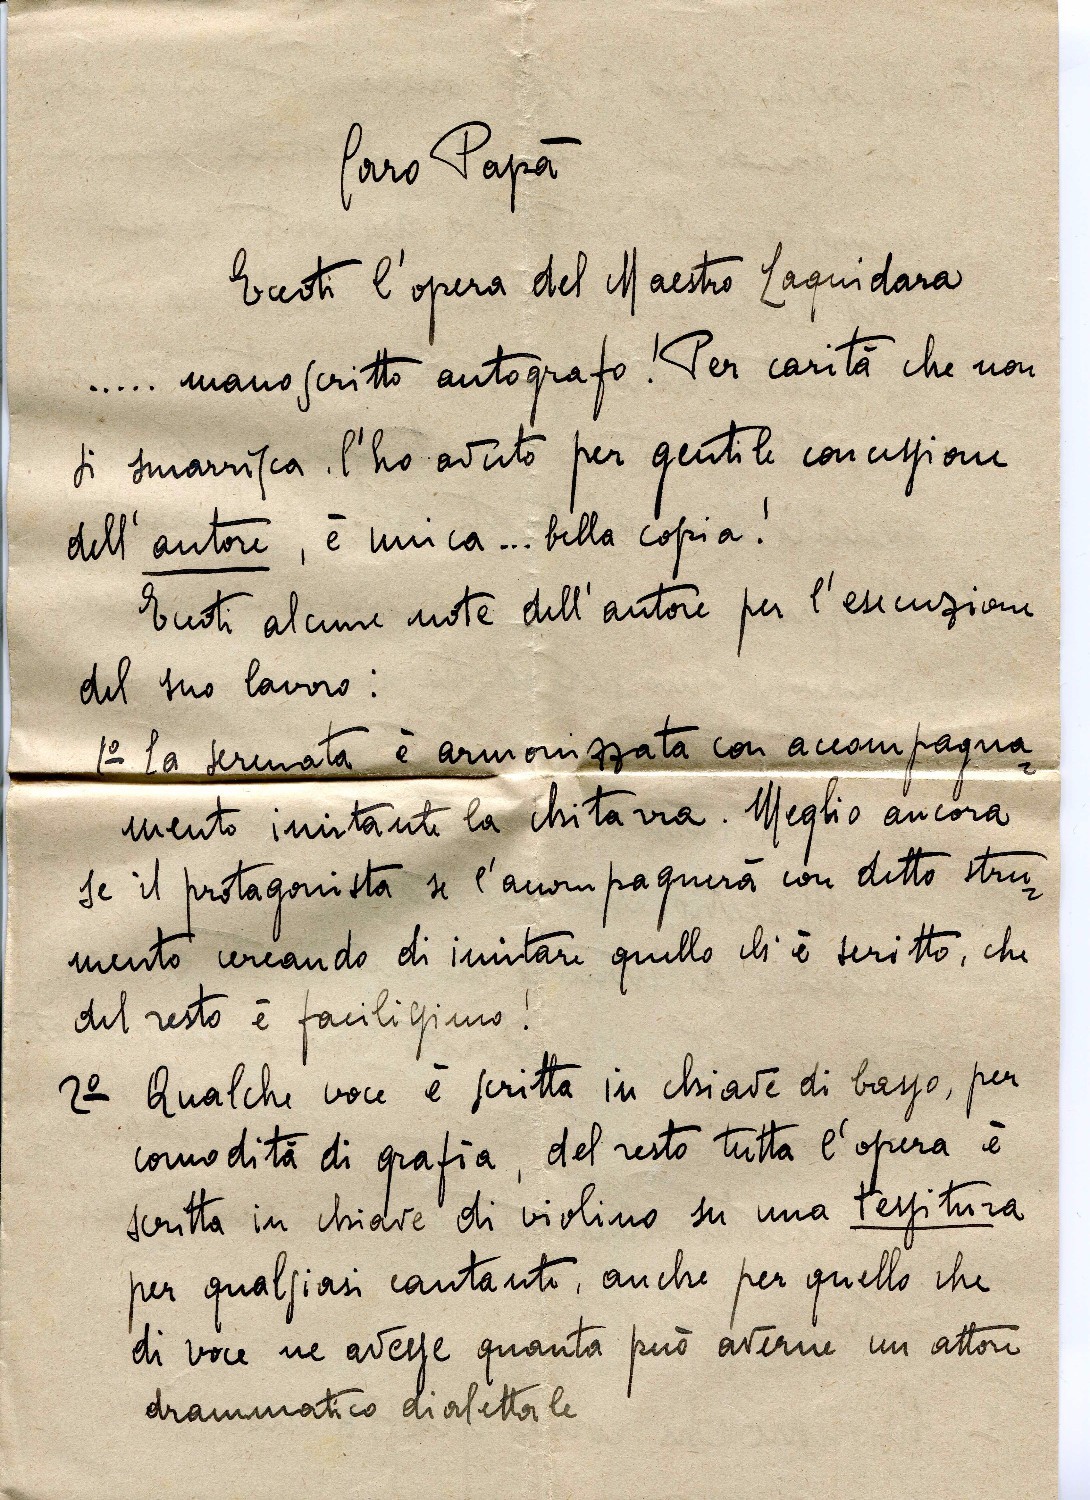 Caro Papà
Eccoti l'opera del Maestro Laquidara
..... manoscritto autografo! Per carità che non
si smarrisca. l'ho avuto per gentile concessione
dell'autore, è unica... bella copia!
Eccoti alcune note dell'autore per l'esecuzione
del suo lavoro:
1º La serenata è armonizzata con accompagna=
mento imitante la chitarra. Meglio ancora
se il protagonista se l'accompagnerà con detto stru=
mento cercando di imitare quello ch'è scritto, che
del resto è facilissimo!
2º Qualche voce è scritta in chiave di basso, per
comodità di grafia, del resto tutta l'opera è
scritta in chiave di violino su una tessitura
per qualsiasi cantante, anche per quello che
di voce ne avesse quanta può averne un attore
drammatico dialettale